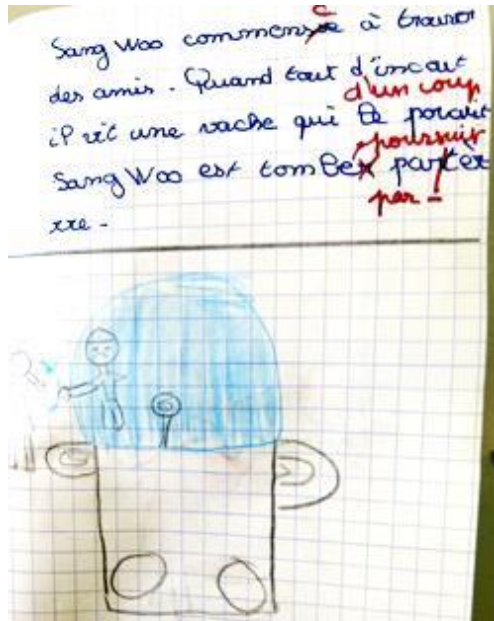 c
Sang Woo commense à trouver
des amis. Quand tout d'incout
d'un coup
il vit une vache qui le poraiit
poursuit
Sang Woo est tombex partèr
par -
rre -